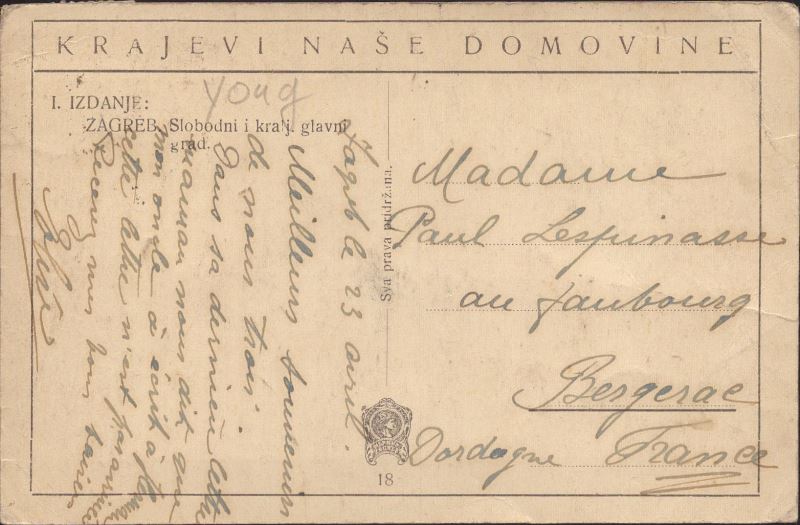 KRAJEVI NAŠE DOMOVINE
I. IZDANJE:
ZAGREB, Slobodni i kralj. glavni
grad.
youg
Sva prava pridržana.
18
Zagreb le 23 avril.
Meilleurs souvenirs
de nous trois.
Dans sa dernière lettre
maman nous dit que
mon oncle a écrit à
cette lettre n'est
Recevez nos bons baisers
Madame
Paul Lespinasse
au faubourg
Bergerac
Dordogne France